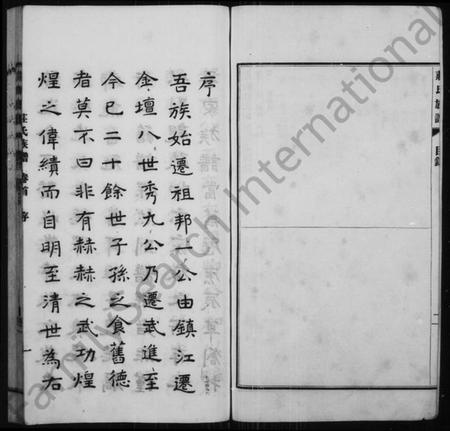 莊氏族譜
目錄
序
吾族始遷祖邦一公由鎮江遷
金壇八世秀九公乃遷武進至
今已二十餘世子孫之食舊德
者莫不曰非有赫赫之武功煌
煌之偉績而自明至清世為右
莊氏族譜 卷首 序
一
FamilySearch International